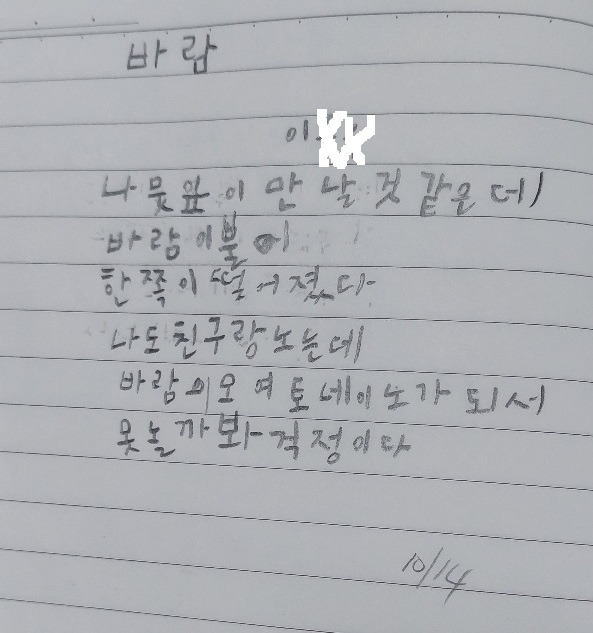 바람
이
나뭇잎이 만날것 같은데
바람이불어
한쪽이 떨어졌다
나도친구랑노는데
바람의오여토네이노가 되서
못놀까봐걱정이다
10/14